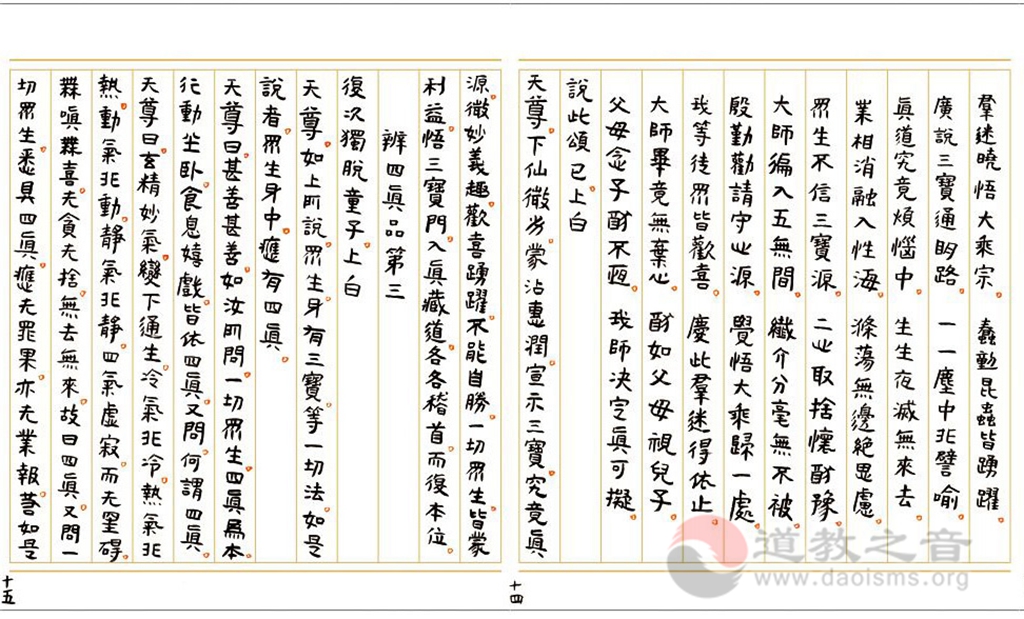 羣迷曉悟大乘宗 蠢動昆蟲皆踴躍
廣說三寶通明路 一一塵中非譬喻
眞道究竟煩惱中 生生夜滅無來去
業相消融入性海 滌蕩無邊絕思慮
眾生不信三寶源 二心取捨懷猶豫
大師徧入五無間 纖介分毫無不被
殷勤勸請守心源 覺悟大乘歸一處
我等徒眾皆歡喜 慶此羣迷得依止
大師畢竟無棄心 猶如父母視兒子
父母念子猶不迴 我師決定眞可擬
天尊下仙微劣蒙沾惠潤宣示三寶究竟眞
說此頌已上白
十四
源微妙義趣歡喜踴躍不能自勝一切眾生皆蒙
利益悟三寶門入眞藏道各各稽首而復本位
辨四眞品第三
復次獨脫童子上白
天尊如上所說眾生身有三寶等一切法如是
說者眾生身中應有四眞
天尊曰甚善甚善如汝所問一切眾生四眞為本
行動坐臥食息嬉戲皆依四眞又問何謂四眞
天尊曰玄精妙氣變下通生冷氣非冷熱氣非
熱動氣非動靜氣非靜四氣虛寂而无罣礙
無嗔無喜无貪无捨無去無來故曰四眞又問一
切眾生悉具四眞應无罪果亦无業報若如是
十五
道教之音
www.daoisms.org